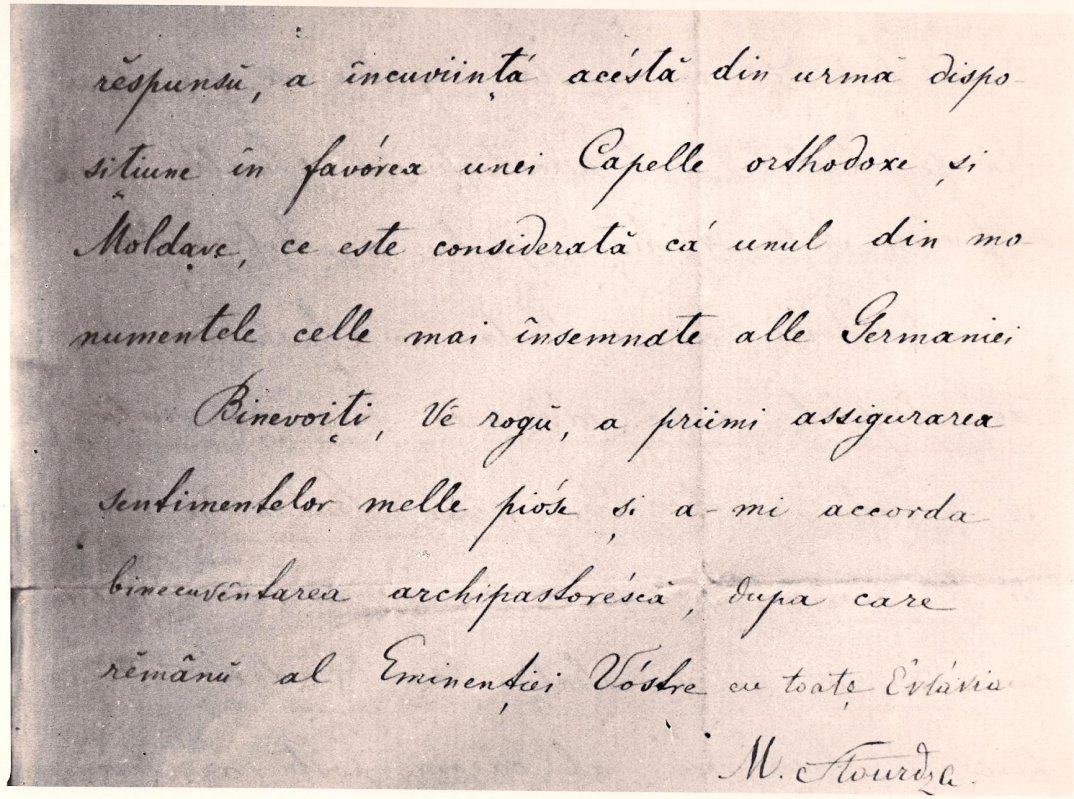 rĕspunsŭ, a încuviința acéstă din urmă dispo-
sițiune în favórea unei Capelle orthodoxe și
Moldave, ce este considerată cá unul din mo-
numentele celle mai însemnate alle Germaniei
Binevoiți, Vĕ rogŭ, a priimi assigurarea
sentimentelor melle pióse și a-mi accorda
binecuvêntarea archipastoréscă, dupa care
rĕmânŭ al Eminenției Vóstre cu toate Evlávia
M. Stourdza.